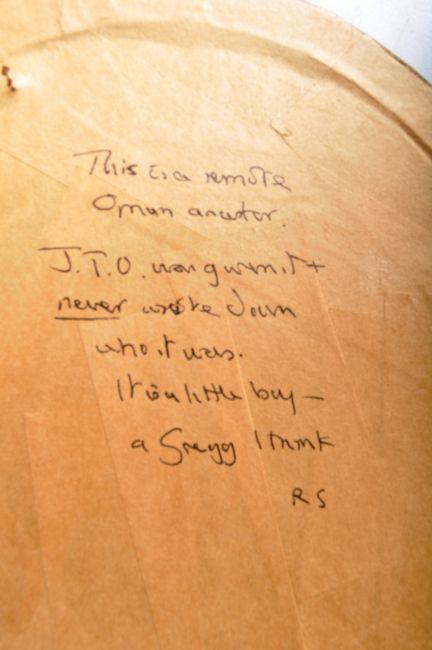 This is a remote
Oman ancestor.
J.T.O. was given it +
never wrote down
who it was.
It is a little boy —
a Gregg I think
RS